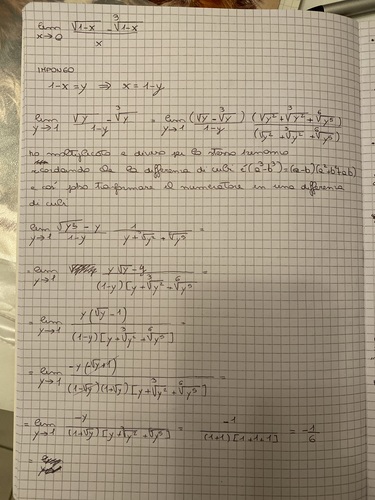 lim √1-x - ³√1-x
x→0 x
IMPONGO
1-x = y ⇒ x = 1-y
lim √y - ³√y = lim (√y - ³√y) (√y² + ³√y² + ⁶√y⁵)
y→1 1-y y→1 1-y (√y² + ³√y² + ⁶√y⁵)
ho moltiplicato e diviso per lo stesso trinomio
ricordando che la differenza di cubi è (a³-b³)=(a-b)(a²+b²+ab)
e così posso trasformare il numeratore in una differenza
di cubi
lim √y³ - y 1 =
y→1 1-y y + ³√y² + ⁶√y⁵
= lim y√y - y =
y→1 (1-y)[y + ³√y² + ⁶√y⁵]
= lim y(√y - 1) =
y→1 (1-y)[y + ³√y² + ⁶√y⁵]
= lim -y(-√y+1) =
y→1 (1-√y)(1+√y)[y + ³√y² + ⁶√y⁵]
= lim -y = -1 = -1
y→1 (1+√y)[y + ³√y² + ⁶√y⁵] (1+1)[1+1+1] 6
=